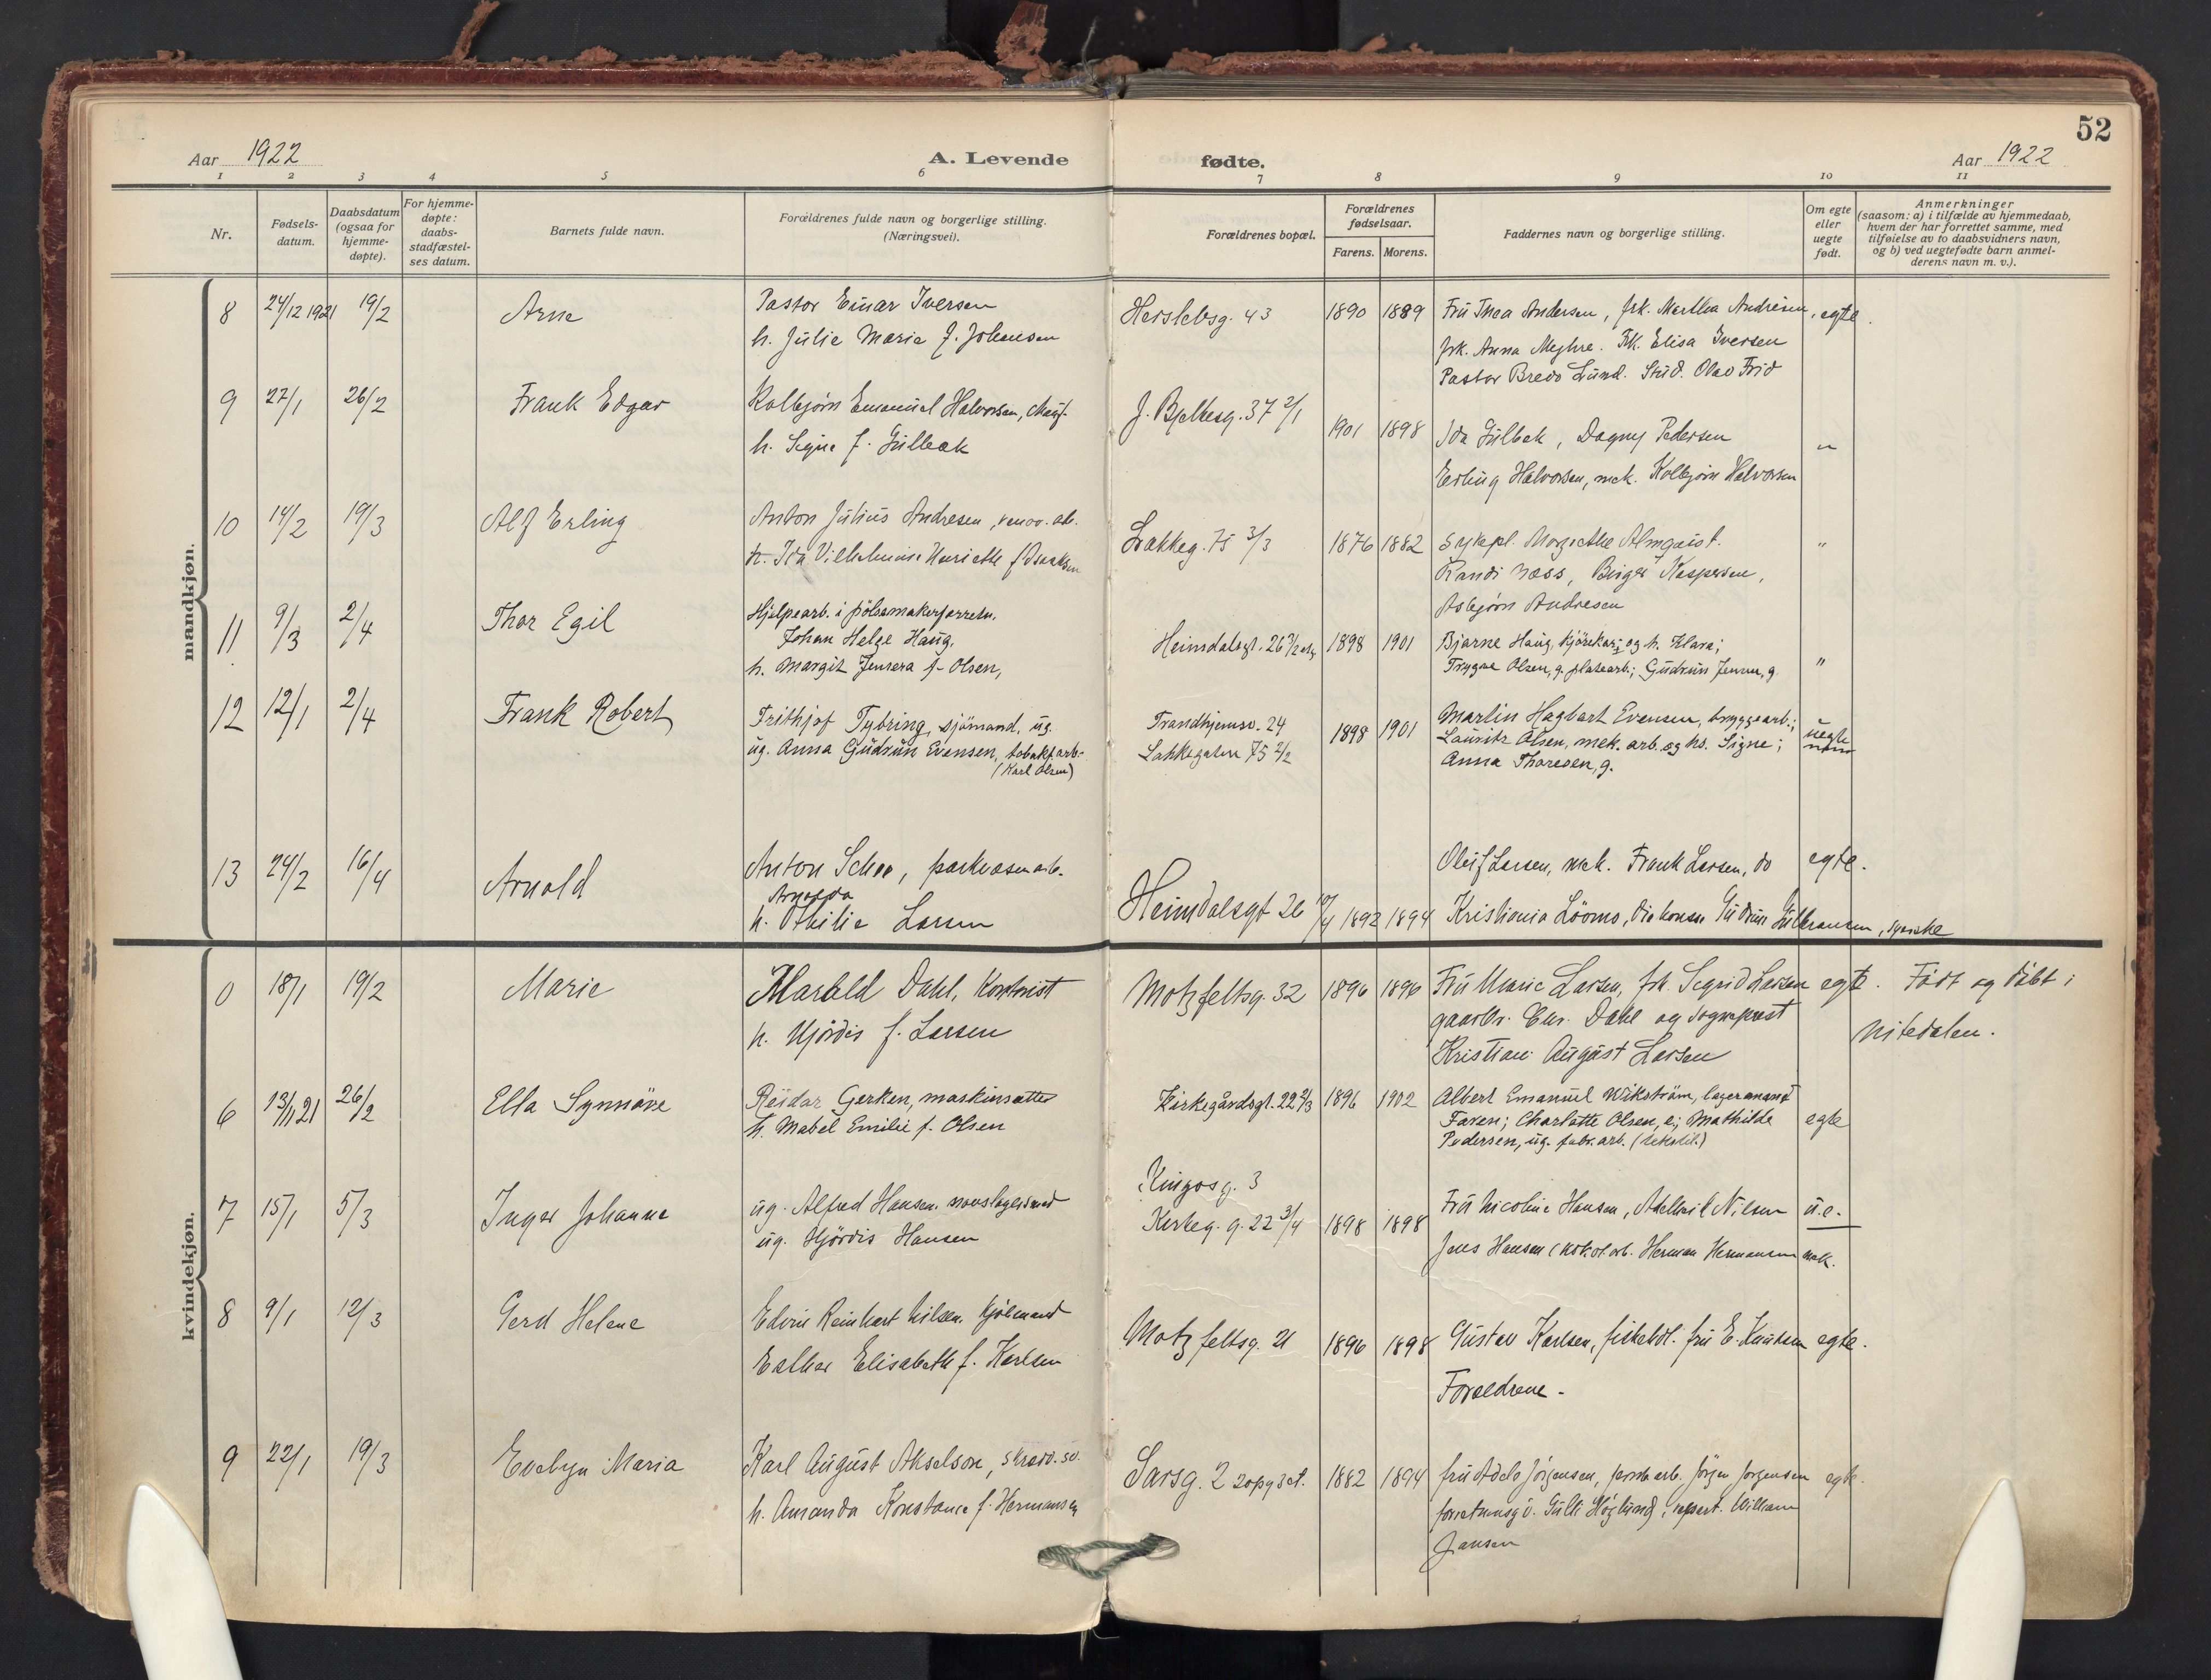 52
Aar 1922
A. Levende
fødte.
Aar 1922
1 2 3 4 5 6 7 8 9 10 11
Nr.
Fødsels-
datum.
Daabsdatum
(ogsaa for
hjemme-
døpte).
For hjemme-
døpte:
daabs-
stadfæstel-
ses datum.
Barnets fulde navn.
Forældrenes fulde navn og borgerlige stilling.
(Næringsvei).
Forældrenes bopæl.
Forældrenes
fødselsaar.
Farens. Morens.
Faddernes navn og borgerlige stilling.
Om egte
eller
uegte
født.
Anmerkninger
(saasom: a) i tilfælde av hjemmedaab,
hvem der har forrettet samme, med
tilføielse av to daabsvidners navn,
og b) ved uegtefødte barn anmel-
derens navn m. v.).
mandkjøn.
8 24/12 1921 19/2 Arne
Pastor Einar Iversen
h. Julie Marie f. Johansen
Herslebsg. 43 1890 1889
Fru Thea Andersen, frk. Martha Andresen, egte.
frk. Anna . Frk. Elisa Iversen
Pastor Bredo Lund. Stud. Olav Frid
9 27/1 26/2 Frank Edgar
Kolbjørn Emanuel Halvorsen,
h. Signe f. Gulbæk
J. Bjelkesg. 37 2/1 1901 1898
Ida Gulbek, Dagny Pedersen "
Erling Halvorsen, mek. Kolbjørn Halvorsen
10 14/2 19/3 Alf Erling
Anton Julius Andresen, renov. arb.
h. Ida Vilhelmine Henriette f. Isaksen
Lakkeg. 75 3/3 1876 1882
sykepl. Margrethe Almquist. "
Randi Næss, Birger Kaspersen,
Asbjørn Andresen
11 9/3 2/4 Thor Egil
Hjelpearb. i pölsemakerforretn.
Johan Helge Haug,
h. Margit Jensera f. Olsen,
Heimdalsgt. 26 3/2 etg 1898 1901
Bjarne Haug, kjörekar; og h. Klara;
Trygve Olsen, g. platearb.; Gudrun Jensen, g. "
12 12/1 2/4 Frank Robert
Frithjof Tybring, sjömand, ug.
ug. Anna Gudrun Evensen, tobakf.arb.
(Karl Olsen)
Trondhjemsv. 24
Lakkegaten 75 2/2
1898 1901
Martin Hagbart Evensen, bryggearb.;
Lauritz Olsen, mek. arb. og hs. Signe;
Anna Thoresen, g.
uegte
13 24/2 16/4 Arnold
Anton Schee, parkvæsenarb.
Arnolda
h. Othilie Larsen
Heimdalsgt 26 1892 1894
Oluf Larsen, mek. Frank Larsen, do egte.
Kristiania Löoms, diakonsse Gudrun Gulbransen,
kvindekjøn.
0 18/1 19/2 Marie
Harald Dahl, Kontorist
h. Hjördis f. Larsen
Motzfeltsg. 32 1896 1896
Fru Marie Larsen, frk. Sigrid Larsen egte. Född og döbt i
gaardbr. Chr. Dahl og Sogneprest
Nitedalen.
Kristian August Larsen
6 13/11 21 26/2 Ella Synnöve
Reidar Gerken, maskinsætter
h. Mabel Emilie f. Olsen
Kirkegårdsgt. 22 2/3 1896 1902
Albert Emanuel Wikström, lagermand
Faren; Charlotte Olsen, e; Mathilde egte
Pedersen, ug. fabr. arb. (tekstil.)
7 15/1 5/3 Inger Johanne
ug. Alfred Hansen.
ug. Hjördis Hansen
Kingosg. 3
Kirkeg. g. 22 3/4 1898 1898
Fru Nicoline Hansen, Nilsen u.e.
Jens Hansen Herman Hermansen mek.
8 9/1 12/3 Gerd Helene
Edvin Reinhart Nilsen.
Esther Elisabeth f. Karlsen
Motzfeltsg. 21 1896 1898
Gustav Karlsen, fiskehdl. fru E. Knutsen egte.
Foreldrene.
9 22/1 19/3 Evelyn Maria
Karl August Akselson, skræd. sv.
h. Amanda Konstance f. Hermansen
Sarsg. 2 2 opg 3 et. 1882 1894
fru Adele Jörgensen, Jörgen Jorgensen egte.
Gulli Höglund, repart. William
Jansen